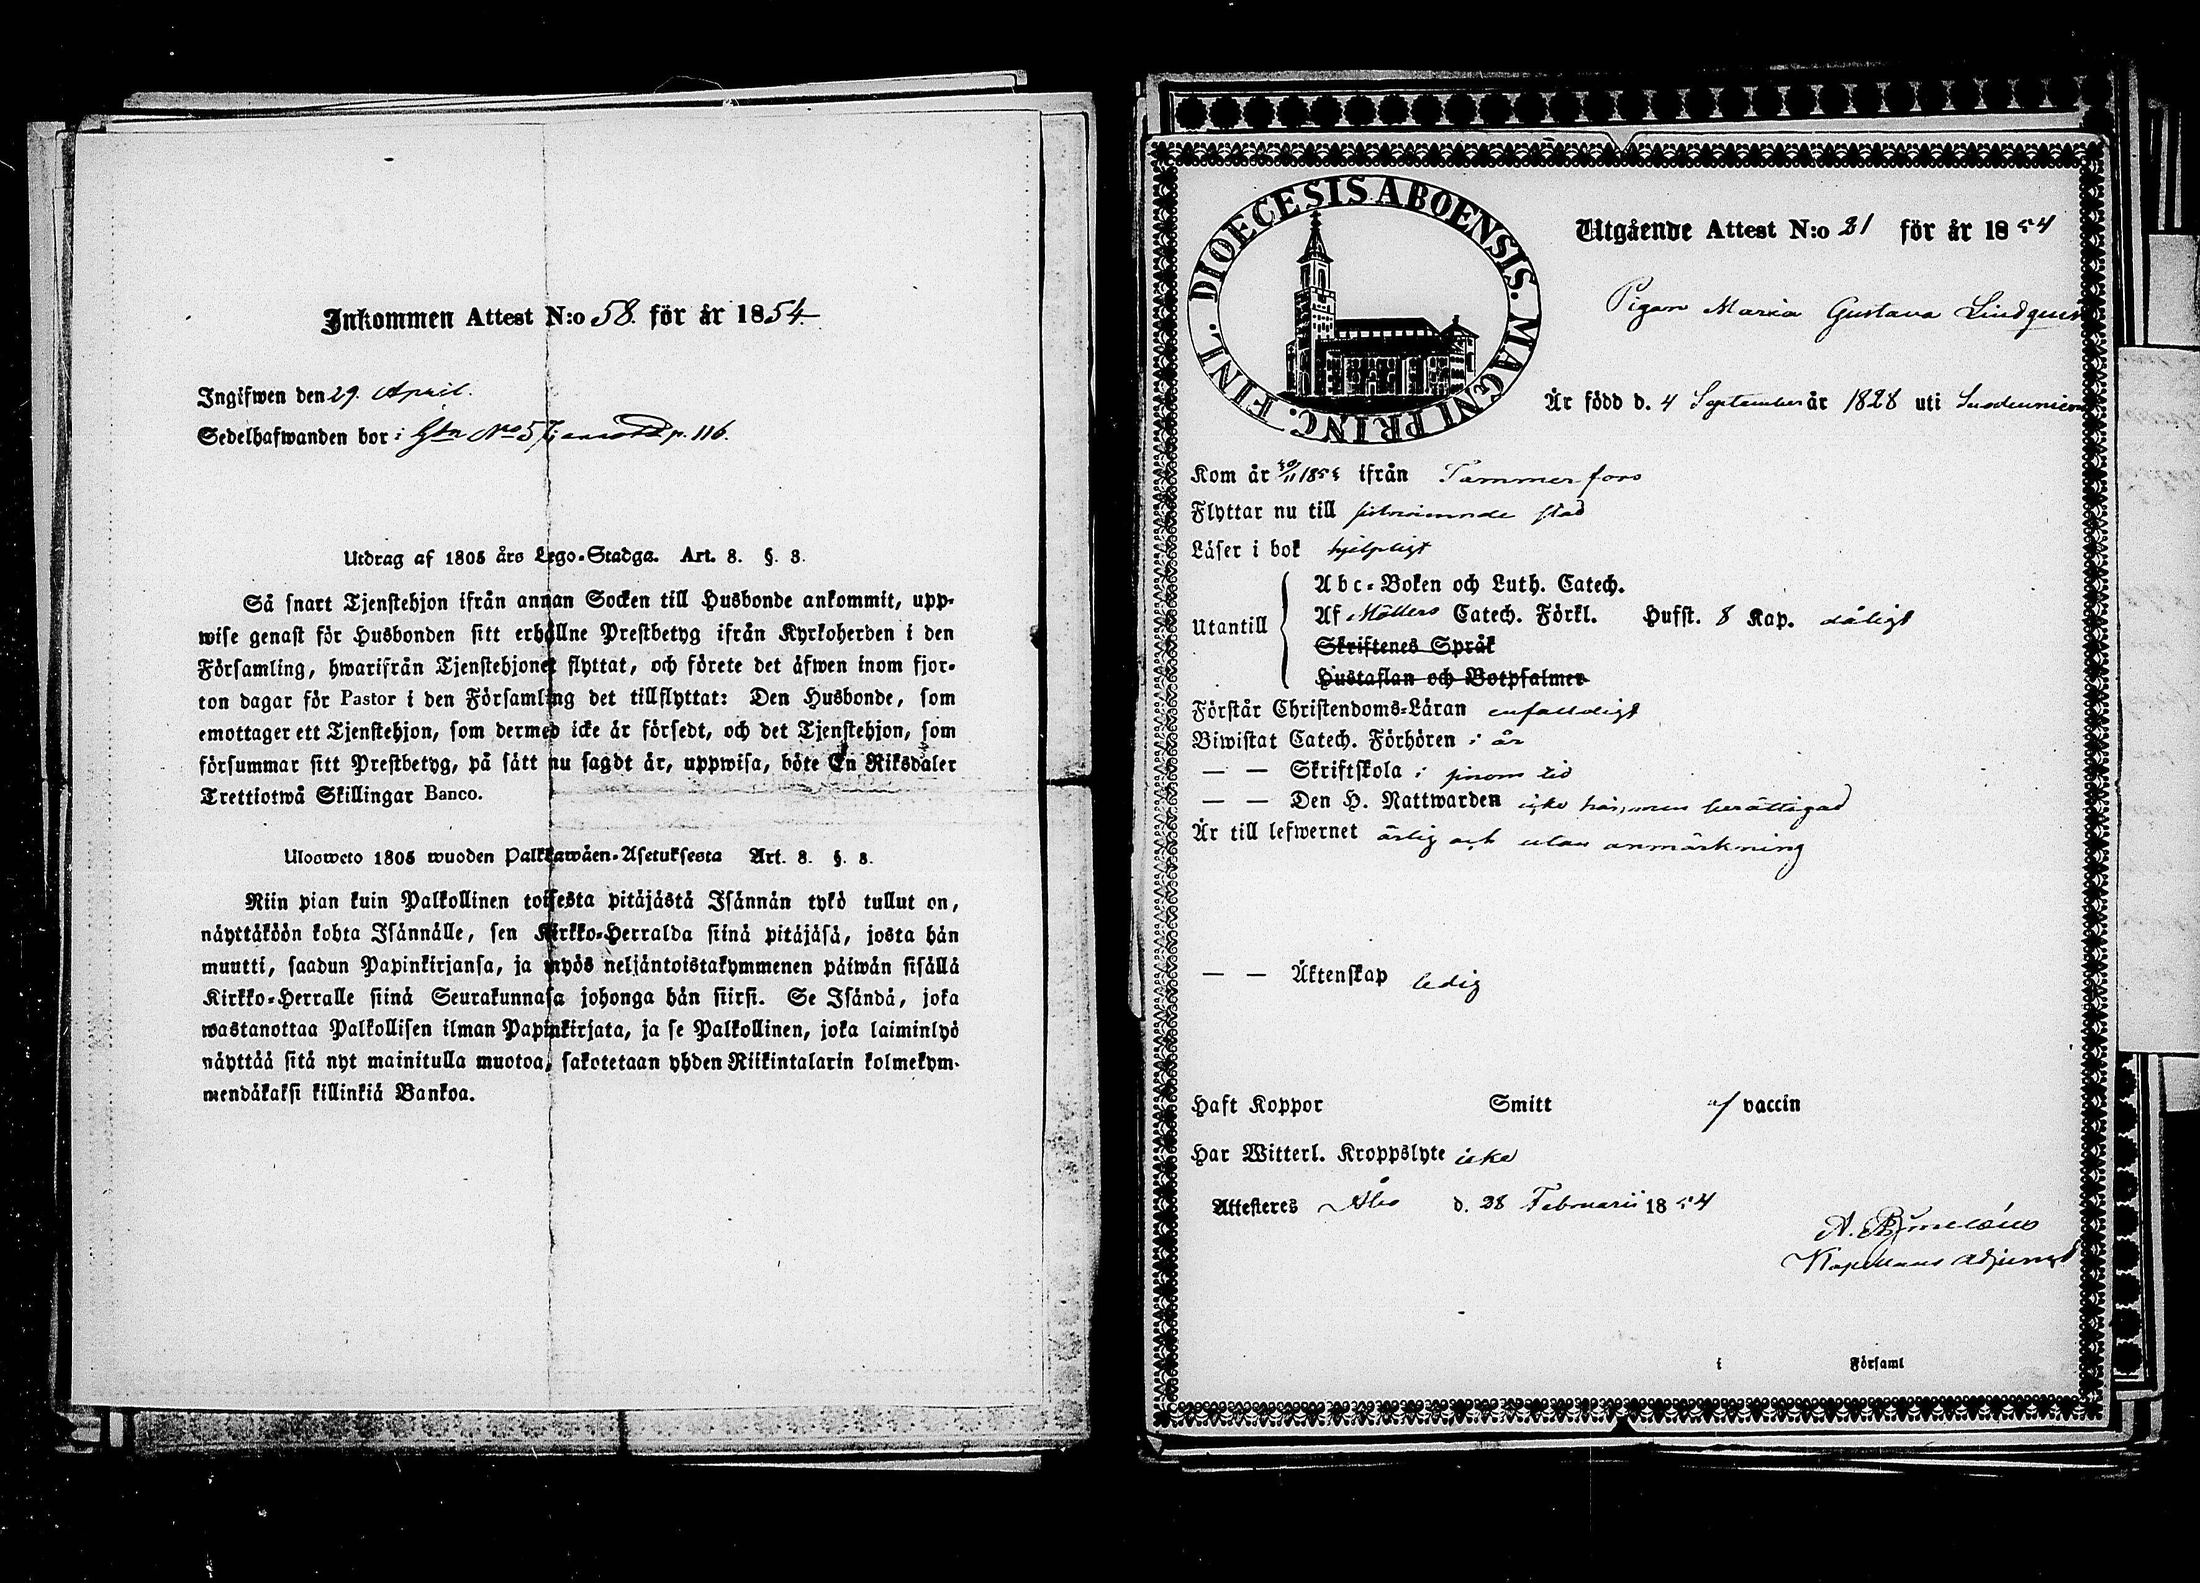 Inkommen Attest N:o 58. för år 1854.
Ingifwen den 29. April.
Sedelhafwanden bor i Gdn No 5 p. 116.
Utdrag af 1805 års Lego-Stadga. Art. 8. §. 3.
Så snart Tjenstehjon ifrån annan Socken till Husbonde ankommit, upp-
wise genast för Husbonden sitt erhållne Prestbetyg ifrån Kyrkoherden i den
Församling, hwarifrån Tjenstehjonet flyttat, och förete det äfwen inom fjor-
ton dagar för Pastor i den Församling det tillflyttat: Den Husbonde, som
emottager ett Tjenstehjon, som dermed icke är försedt, och det Tjenstehjon, som
försummar sitt Prestbetyg, på sätt nu sagdt är, uppwisa, böte En Riksdaler
Trettiotwå Skillingar Banco.
Ulosweto 1805 wuoden Palkkawäen-Asetuksesta Art. 8. §. 3.
Niin pian kuin Palkollinen toisesta pitäjästä Isännän tykö tullut on,
näyttäköön kohta Isännälle, sen Kirkko-Herralda siinä pitäjäsä, josta hän
muutti, saadun Papinkirjansa, ja myös neljäntoistakymmenen päiwän sisällä
Kirkko-Herralle siinä Seurakunnasa johonga hän siirsi. Se Isändä, joka
wastanottaa Palkollisen ilman Papinkirjata, ja se Palkollinen, joka laiminlyö
näyttää sitä nyt mainitulla muotoa, sakotetaan yhden Riikintalarin kolmekym-
mendäkaksi killinkiä Bankoa.
DIOECESIS ABOENSIS. MAGNI PRINC. FINL.
Utgående Attest N:o 21 för år 1854
Pigan Maria Gustava Lindqvist
Är född d. 4 September år 1828 uti
Kom år ifrån Tammerfors
Flyttar nu till sistnämnde stad
Läser i bok hjelpligt
Utantill
Abc-Boken och Luth. Catech.
Af Möllers Catech. Förkl. Hufst. 8 Kap. dåligt
Skriftenes Språk
Hustaflan och Botpsalmer
Förstår Christendoms-Läran enfaldigt
Biwistat Catech. Förhören i år
— — Skriftskola i sinom tid
— — Den H. Nattwarden icke här, men berättigad
Är till lefwernet ärlig och utan anmärkning
— — Äktenskap ledig
Haft Koppor Smitt af vaccin
Har Witterl. Kroppslyte icke
Attesteres Åbo d. 28 Februarii 1854
A.
Kapellans adjunct
i Församl